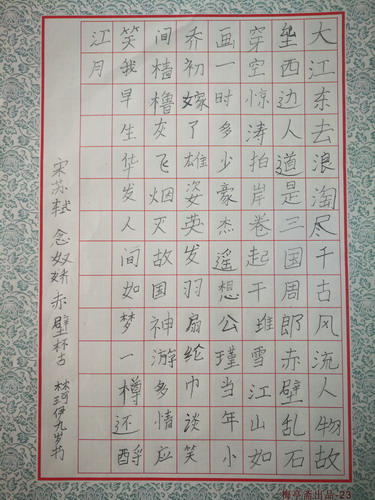 大江东去浪淘尽千古风流人物故
垒西边人道是三国周郎赤壁乱石
穿空惊涛拍岸卷起千堆雪江山如
画一时多少豪杰遥想公瑾当年小
乔初嫁了雄姿英发羽扇纶巾谈笑
间樯橹灰飞烟灭故国神游多情应
笑我早生华发人间如梦一樽还酹
江月
宋苏轼念奴娇赤壁怀古 林珂伊九岁书
梅亭斋出品-23